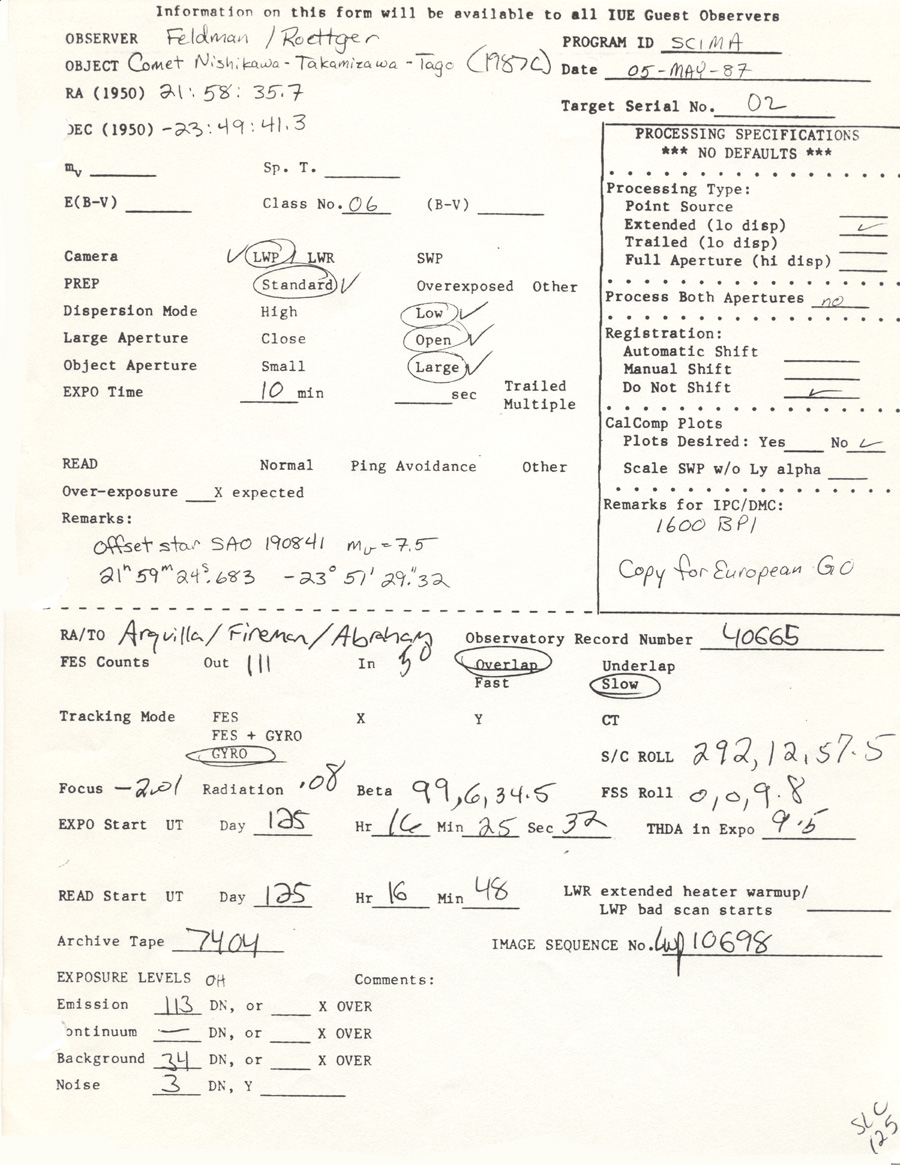 Information on this form will be available to all IUE Guest Observers
OBSERVER Feldman / Roettger PROGRAM ID SCIMA
OBJECT Comet Nishikawa-Takamizawa-Tago (1987c) Date 05-MAY-87
RA (1950) 21:58:35.7
Target Serial No. 02
DEC (1950) -23:49:41.3
PROCESSING SPECIFICATIONS
*** NO DEFAULTS ***
mv ____ Sp. T. ____
Processing Type:
Point Source ____
E(B-V) ____ Class No. 06 (B-V) ____
Extended (lo disp) ✓
Trailed (lo disp) ____
Full Aperture (hi disp) ____
Camera ✓ LWP / LWR SWP
PREP Standard ✓ Overexposed Other
Process Both Apertures no
Dispersion Mode High Low ✓
Large Aperture Close Open ✓
Registration:
Automatic Shift ____
Object Aperture Small Large ✓
Manual Shift ____
Do Not Shift ✓
EXPO Time 10 min ____ sec Trailed
Multiple
CalComp Plots
Plots Desired: Yes ____ No ✓
READ Normal Ping Avoidance Other
Scale SWP w/o Ly alpha ____
Over-exposure ___X expected
Remarks for IPC/DMC:
1600 BPI
Copy for European GO
Remarks:
Offset star SAO 190841 mv = 7.5
21h 59m 24s.683 -23° 51' 29."32
RA/TO Arquilla/Fireman/Abraham Observatory Record Number 40665
FES Counts Out 111 In 50 Overlap Underlap
Fast Slow
Tracking Mode FES X Y CT
FES + GYRO
GYRO
S/C ROLL 292,12,57.5
Focus -2.01 Radiation .08 Beta 99,6,34.5 FSS Roll 0,0,9.8
EXPO Start UT Day 125 Hr 16 Min 25 Sec 32 THDA in Expo 9.5
READ Start UT Day 125 Hr 16 Min 48 LWR extended heater warmup/
LWP bad scan starts ____
Archive Tape 7404 IMAGE SEQUENCE No. lwp10698
EXPOSURE LEVELS OH Comments:
Emission 113 DN, or ____ X OVER
ontinuum — DN, or ____ X OVER
Background 34 DN, or ____ X OVER
Noise 3 DN, Y ____
SLC
125